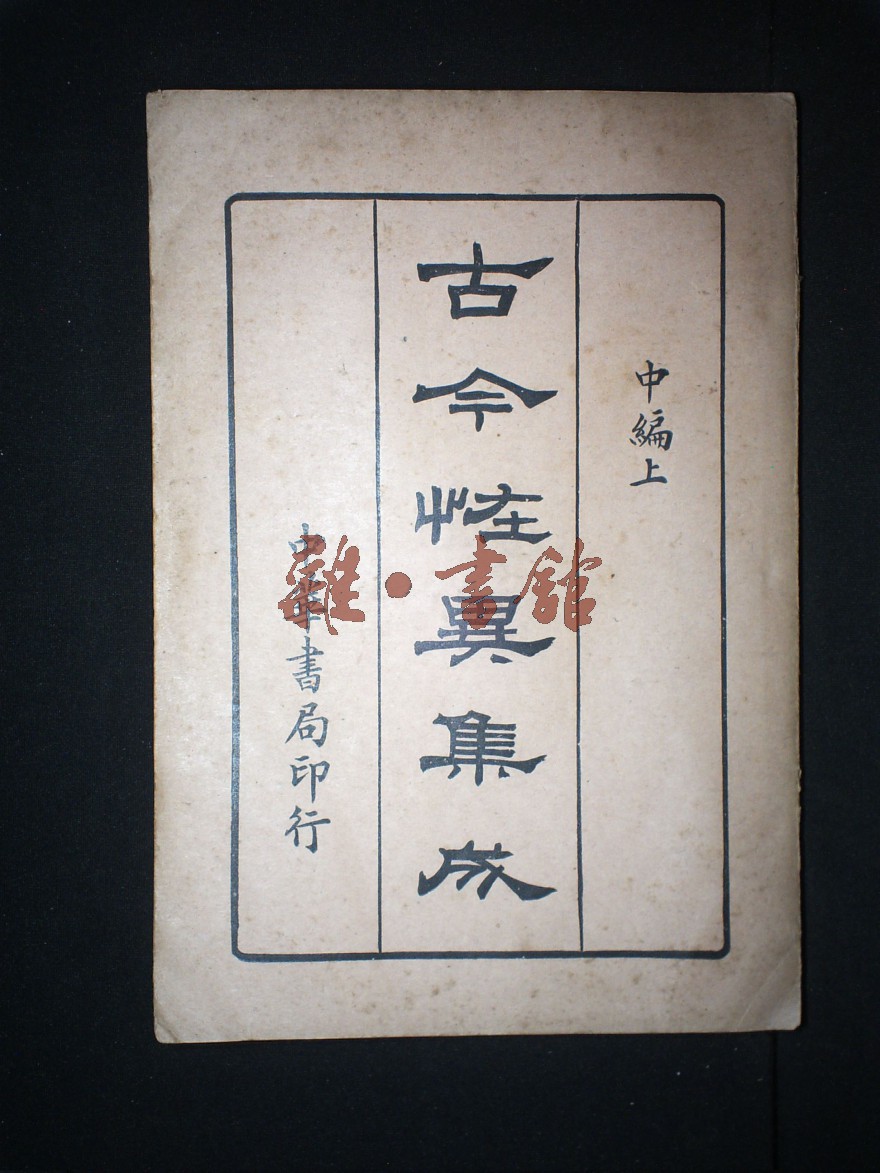 中編上
古今恠異集成
中華書局印行
雜·書館